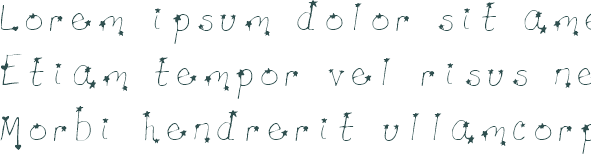 Lorem ipsum dolor sit ame
Etiam tempor vel risus ne
Morbi hendrerit ullamcorp